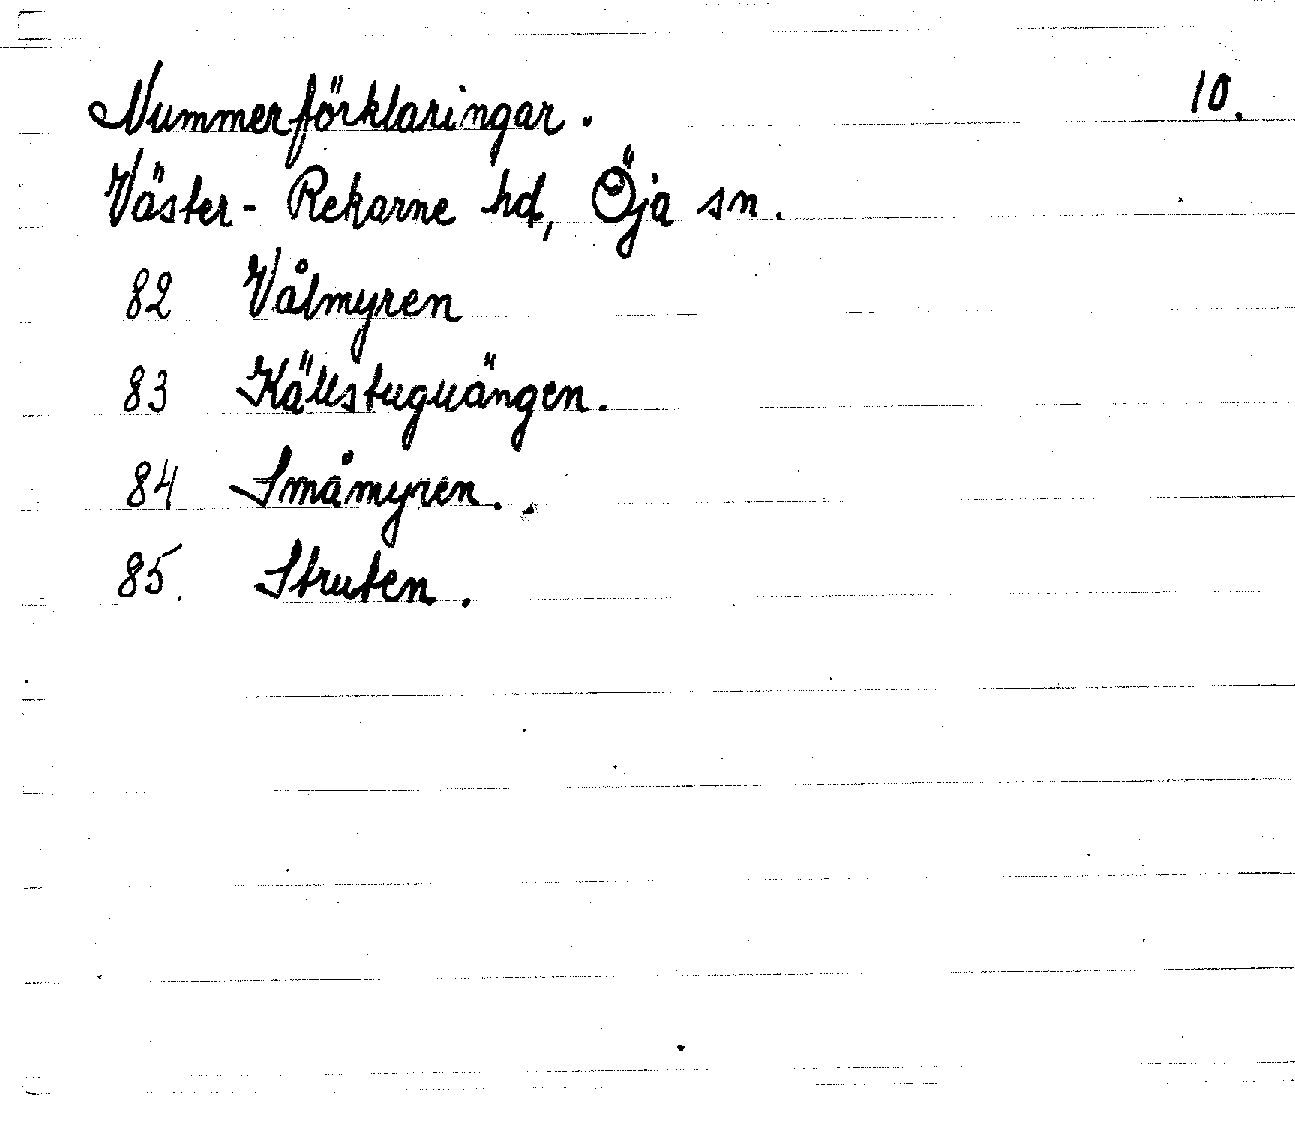 Nummerförklaringar. 10.
Väster-Rekarne hd, Öja sn.
82 Vålmyren
83 Källstuguängen.
84 Småmyren.
85. Struten.